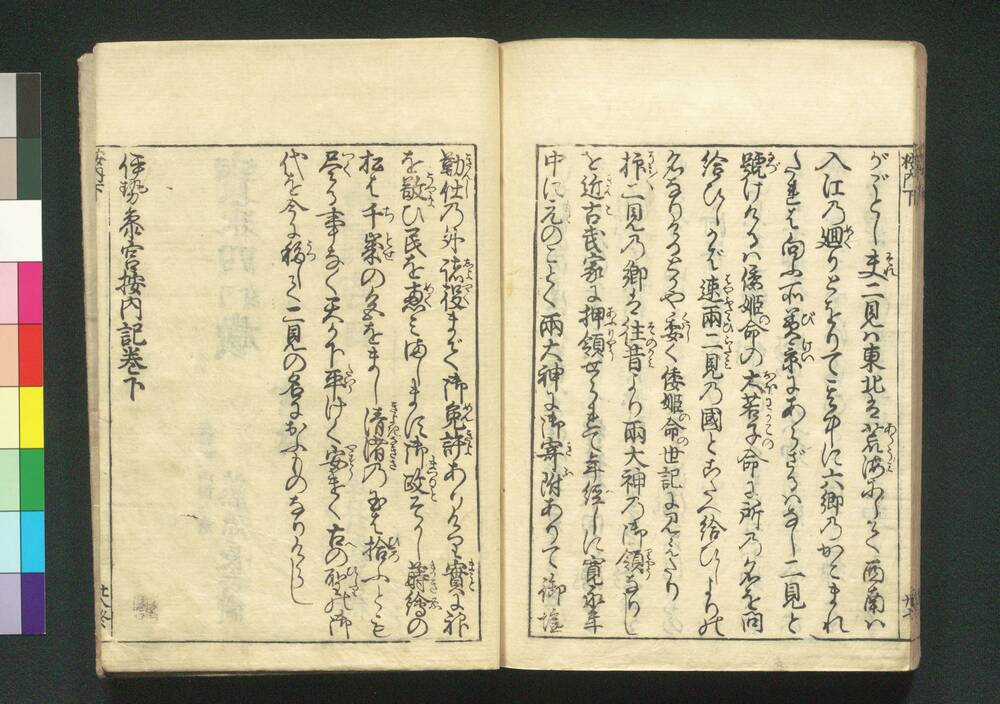 がごとし夫二見ハ東北は荒海ふかく西南ハ
入江乃廻りとをりて其中に六郷乃かこまれ
たれは向ふ所美景にあらざるハなし二見と
號けけるハ倭姫命の大若子命に所乃名を問
給ひしかば速兩二見乃國とこたへ給ひしよりの
名なりけるとや委く倭姫命世記に見へたり
抑二見乃郷は往昔より兩大神乃御領なりし
を近古武家に押領せられて年經しに寛永年
中に元のことく兩大神に御寄附ありて御塩
勤仕乃外諸役まで御免許ありける実に祢
を敬ひ民を恵み給しまして御政そかし蒔繪の
松も千歳の色をまし清渚の玉も拾ふとも
尽る事なく天か下平けく安すく古の聖の御
代を今に移して二見の名におふものなりけらし
伊勢参宮按内記巻下